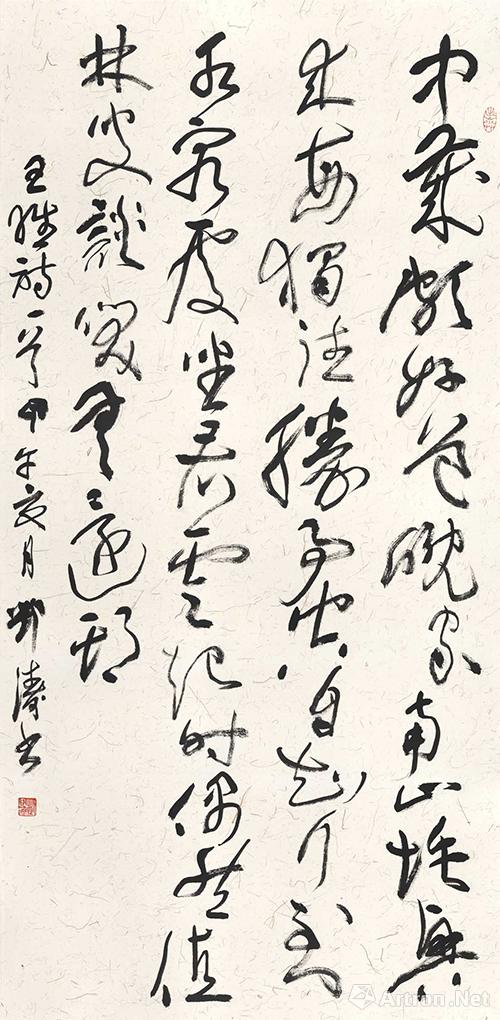 中歲頗好道晚家南山陲興
來每獨往勝事空自知行到
水窮處坐看雲起时偶然值
林叟談笑無還期
王維詩一首甲午月濤書
Artron.Net